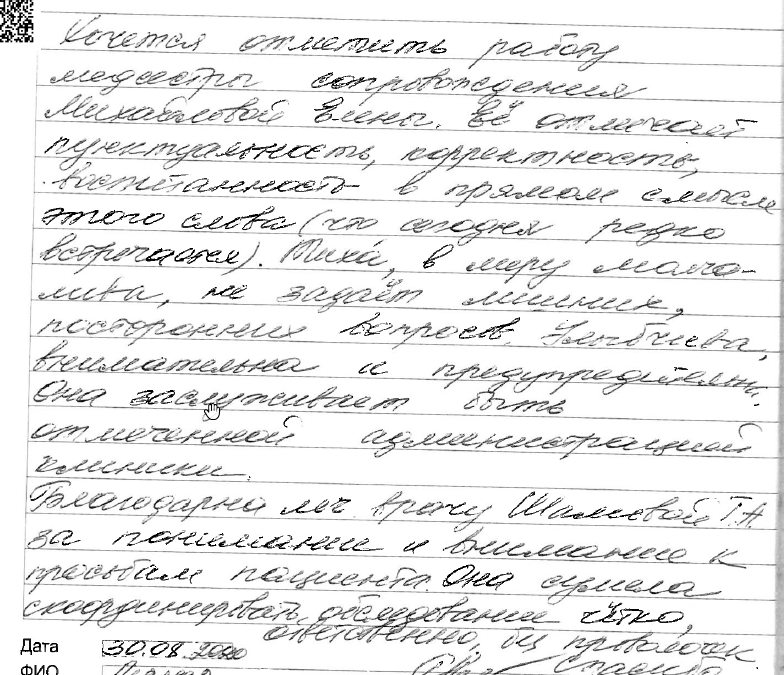 Хочется отметить работу
медсестры сопровождения
Михайловой Елены. Её отличает
пунктуальность, корректность,
воспитанность в прямом смысле
этого слова (что сегодня редко
встречается). Тиха, в меру молча-
лива, не задаёт лишних,
посторонних вопросов. Улыбчива,
внимательна и предупредительна.
Она заслуживает быть
отмеченной администрацией
клиники.
Благодарна леч. врачу Шалиевой Т.А
за понимание и внимание к
просьбам пациента. Она сумела
скоординировать обследование чётко,
ответственно, проволочек.
Дата 30.08.2020 Спасибо
ФИО